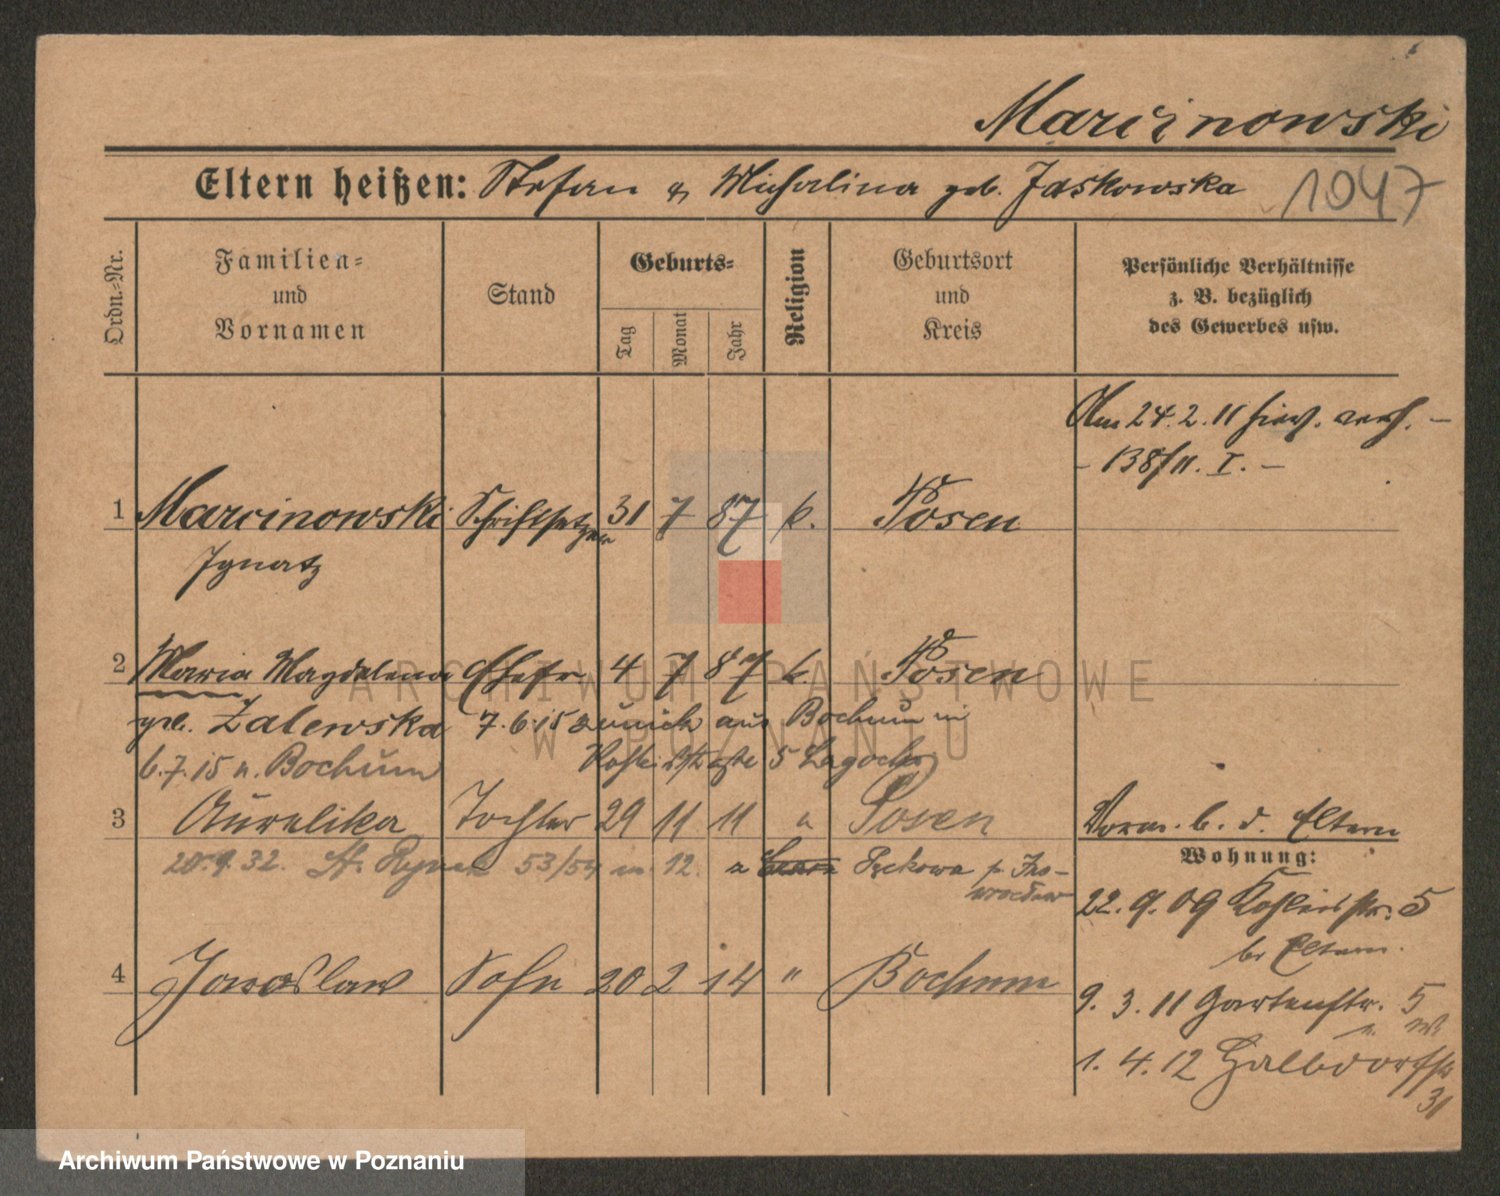 Marcinowski
Eltern heißen: Stefan & Michalina geb. Jaskowska
1047
Ordn.-Nr.
Familien-
und
Vornamen
Stand
Geburts-
Tag
Monat
Jahr
Religion
Geburtsort
und
Kreis
Persönliche Verhältnisse
z. B. bezüglich
des Gewerbes usw.
Am 24.2.11 hier. verh. –
– 138/11. I. –
1 Marcinowski Schriftsetzer 31 7 87 k. Posen
Ignatz
2 Maria Magdalena Ehefr 4 7 87 k. Posen
geb. Zalewska 7.6.15 zurück aus Bochum
6.7.15 n. Bochum 5
3 Aurelika Tochter 29 11 11 " Posen
Vorm. b. d. Eltern
20.9.32. St. Rynek 53/54 m. 12.
Wohnung:
22.9.09 5
b. Eltern.
4 Jaroslaw Sohn 20 2 14 " Bochum
9.3.11 Gartenstr. 5
1.4.12 Halbdorfstr
31
ARCHIWUM PAŃSTWOWE
W POZNANIU
Archiwum Państwowe w Poznaniu